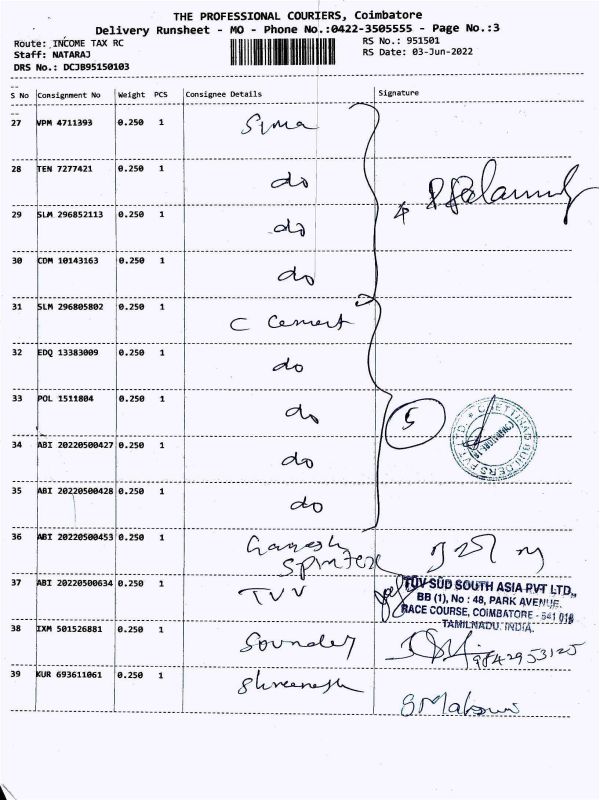 THE PROFESSIONAL COURIERS, Coimbatore
Delivery Runsheet - MO - Phone No.:0422-3505555 - Page No.:3
Route: INCOME TAX RC
RS No.: 951501
Staff: NATARAJ
RS Date: 03-Jun-2022
DRS No.: DCJB95150103
S No Consignment No Weight PCS Consignee Details Signature
27 VPM 4711393 0.250 1 Sima
28 TEN 7277421 0.250 1 do
29 SLM 296852113 0.250 1 do
30 CDM 10143163 0.250 1 do
31 SLM 296805802 0.250 1 C Cement
32 EDQ 13383009 0.250 1 do
33 POL 1511804 0.250 1 do 5
CHETTINAD BUILDERS PVT LTD
34 ABI 20220500427 0.250 1 do
35 ABI 20220500428 0.250 1 do
36 ABI 20220500453 0.250 1 Ganesh
Spintex
37 ABI 20220500634 0.250 1 TVV
TÜV SÜD SOUTH ASIA PVT LTD.,
BB (1), No : 48, PARK AVENUE,
RACE COURSE, COIMBATORE - 641 018
TAMILNADU. INDIA.
38 IXM 501526881 0.250 1 Sounder
9842953125
39 KUR 693611061 0.250 1 Shreenesh